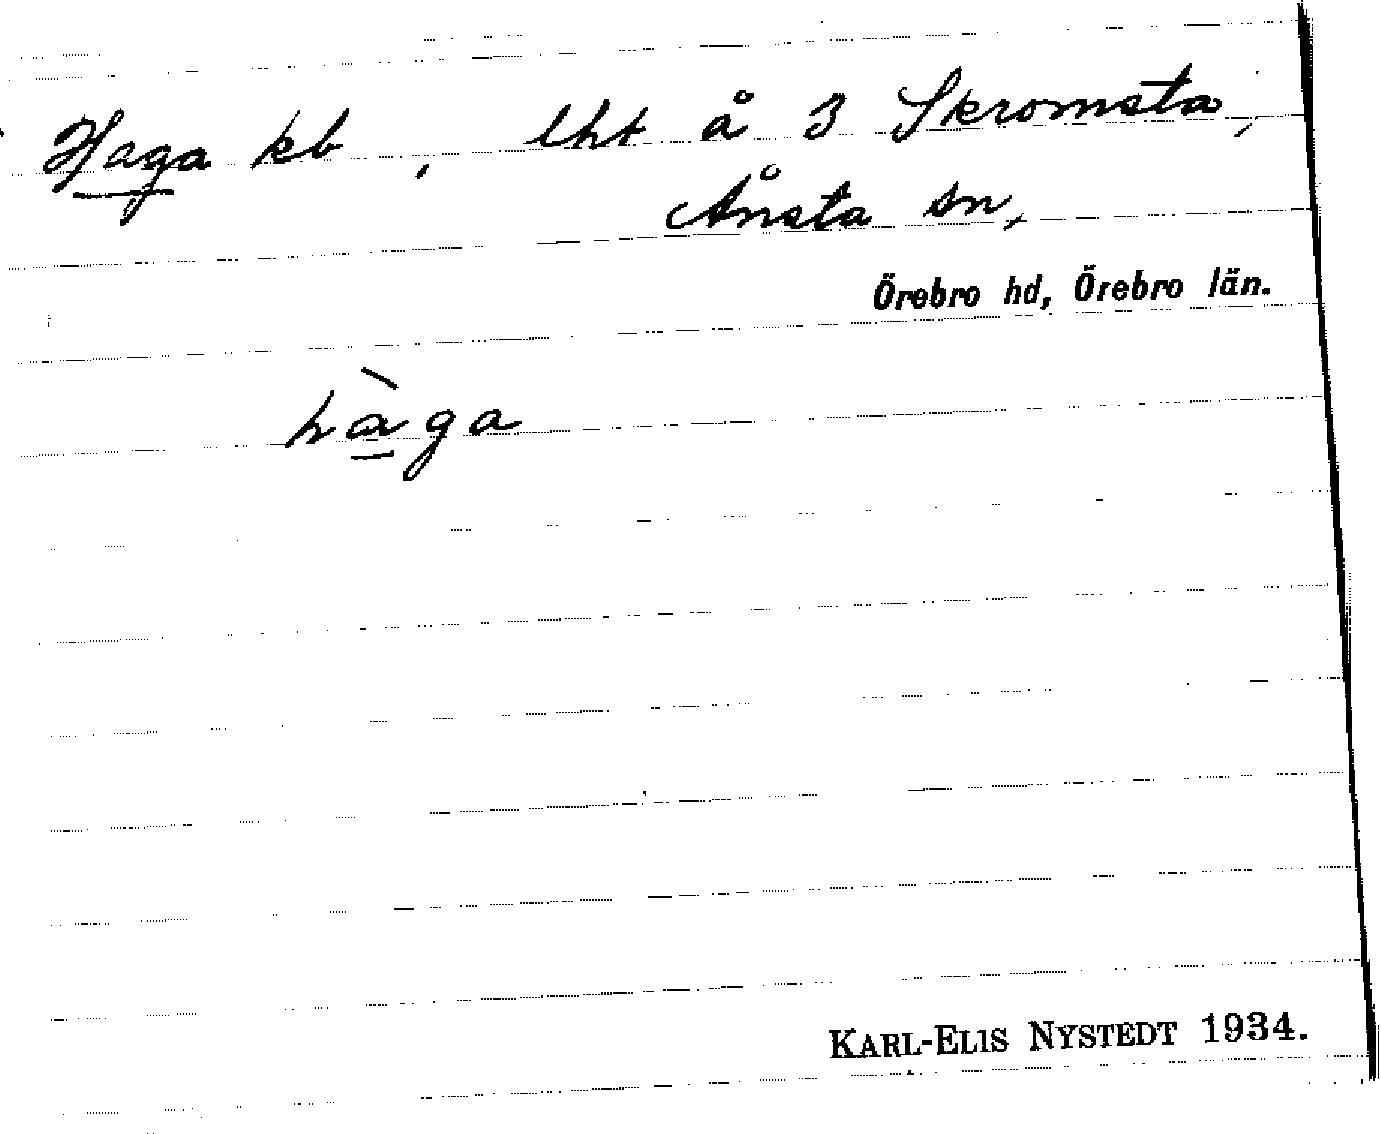 Haga kb, lht å 3 Skromsta,
Ånsta sn,
Örebro hd, Örebro län.
hàga
KARL-ELIS NYSTEDT 1934.